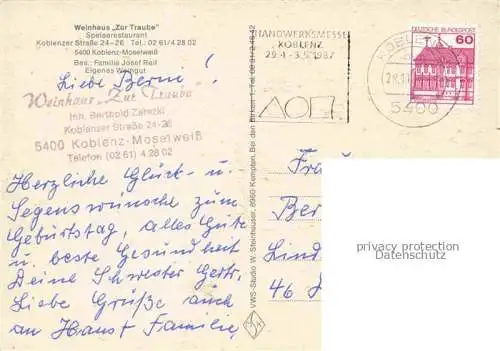 Weinhaus „Zur Traube"
Speiserestaurant
Koblenzer Straße 24-26 Tel.: 02 61/4 28 02
5400 Koblenz-Moselweiß
Bes.: Familie Josef Reil
Eigenes Weingut
Weinhaus „Zur Traube"
Inh. Berthold Zarezki
Koblenzer Straße 24-26
5400 Koblenz-Moselweiß
Telefon (02 61) 4 28 02
Liebe Berni!
Herzliche Glück- u.
Segenswünsche zum
Geburtstag, alles Gute
u. beste Gesundheit
Deine Schwester Gertr.
Liebe Grüße auch
an Hans + Familie,
VWS-Studio W. Steinhauser, 8960 Kempten.
HANDWERKSMESSE
KOBLENZ
29.4.-3.5.1987
5400
DEUTSCHE BUNDESPOST
60
Frau
Ber
Lind
46
privacy protection
Datenschutz